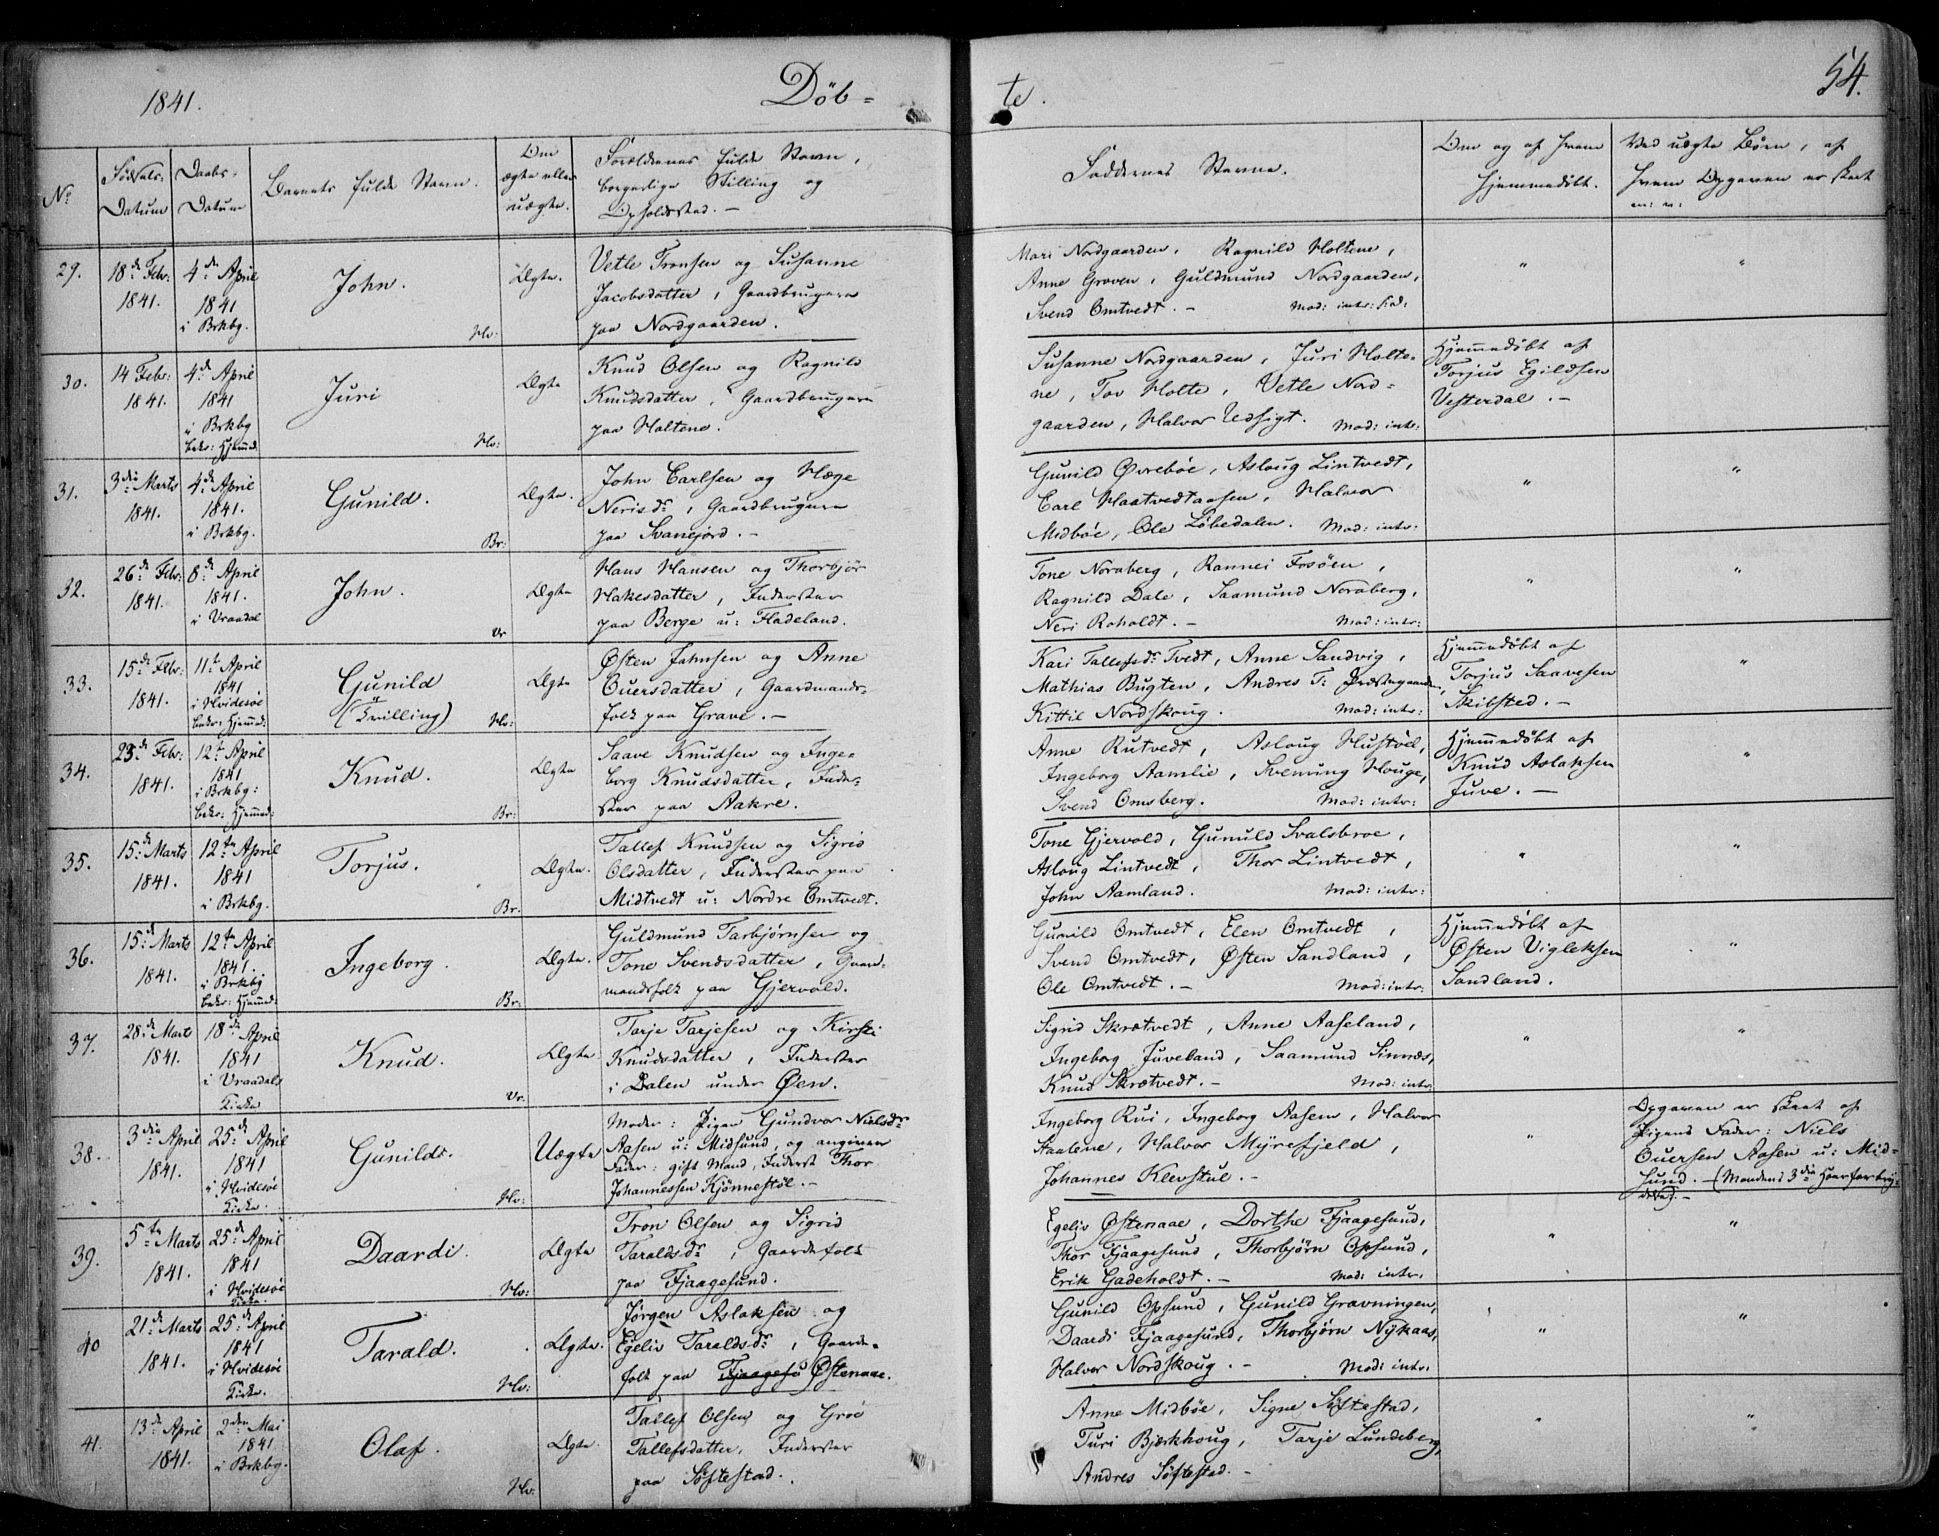 1841.
Døb-
te.
54.
No
Fødsels-
Datum
Daabs-
Datum
Barnets fulde Navn.
Om
ægte eller
uægte.
Forældrenes fulde Navn,
borgerlige Stilling og
Opholdssted. —
Faddernes Navne.
Om og af hvem
hjemmedøbt.
Ved uægte Børn, af
hvem Opgaven er skeet
m: v:
29.
18de Febr:
1841.
4de April
1841
i Brkbg.
John.
Hv:
Ægte.
Vetle Tronsen og Susanne
Jacobsdatter, Gaardbrugere
paa Nordgaarden.
Mari Nordgaarden, Ragnild Holtene,
Anne Groven, Guldmund Nordgaarden,
Svend Omtvedt. — Mod: intr:
"
"
30.
14 Febr:
1841.
4de April
1841
i Brkbg
bekr: Hjemmed:
Juri
Hv:
Ægte
Knud Olsen og Ragnild
Knudsdatter, Gaardbrugere
paa Holtene.
Susanne Nordgaarden, Juri Holte-
ne, Tov Holte, Vetle Nord-
gaarden, Halvor Udsigt. Mod: intr:
Hjemmedøbt af
Torjus Egildsen
Vesterdal. —
31.
3die Marts
1841.
4de April
1841.
i Brkbg.
Gunild.
Br:
Ægte.
John Carlsen og Hæge
Nerisdr, Gaardbrugere
paa Svanejord. —
Gunild Øvrebøe, Aslaug Lintvedt,
Carl Haatvedtaasen, Halvor
Midbøe, Ole Løbedalen. Mod: intr:
"
"
32.
26de Febr:
1841.
8de April
1841.
i Vraadal
John.
Vr
Ægte
Hans Hansen og Thorbjør
Hakesdatter, Inderster
paa Berge u: Fladeland.
Tone Noraberg, Rannei Fosøen,
Ragnild Dale, Saamund Noraberg,
Neri Roholdt. — Mod: intr:
"
"
33.
15de Febr:
1841.
11t April
1841
i Hvidesøe
bekr: Hjemmed:
Gunild
(Tvilling)
Hv:
Ægte
Østen Johnsen og Anne
Ouersdatter, Gaardmands-
folk paa Grave. —
Kari Tallefsdr Tvedt, Anne Sandvig,
Mathias Bugten, Andres T: Præstegaarden,
Kittil Nordskoug. Mod: intr:
Hjemmedøbt af
Torjus Saavesen
Skibsted. —
"
34.
23de Febr:
1841.
12t April
1841
i Brkbg:
bekr: Hjemmed:
Knud.
Br:
Ægte
Saave Knudsen og Inge-
borg Knudsdatter, Inder-
ster paa Aakre.
Anne Rutvedt, Aslaug Hustvel,
Ingeborg Aamlie, Svenung Houge,
Svend Omsberg. Mod: intr:
Hjemmedøbt af
Knud Aslaksen
Juve. —
"
35.
15de Marts
1841.
12te April
1841
i Brkbg.
Torjus.
Br.
Ægte.
Tallef Knudsen og Sigrid
Olsdatter, Inderster paa
Midtvedt u: Nordre Omtvedt.
Tone Gjervold, Gunuld Svalsbroe,
Aslaug Lintvedt, Thor Lintvedt,
John Aamland. Mod: intr:
"
"
36.
15de Marts
1841.
12te April
1841.
i Brkbg
bekr: Hjemmed:
Ingeborg.
Br:
Ægte.
Guldmund Tarbjørnsen og
Tone Svendsdatter, Gaard-
mandsfolk paa Gjervold.
Gunild Omtvedt, Elen Omtvedt,
Svend Omtvedt, Østen Sandland,
Ole Omtvedt. — Mod: intr:
Hjemmedøbt af
Østen Vigleksen
Sandland.
"
37.
28de Mart
1841.
18de April
1841
i Vraadals
Kirke
Knud.
Vr.
Ægte
Tarje Tarjesen og Kirsti
Knudsdatter, Inderster
i Dalen under Øen.
Sigrid Skrætvedt, Anne Aaseland,
Ingeborg Juveland, Saamund Sinnes,
Knud Skrætvedt. — Mod: intr:
"
"
38.
3die April
1841.
25de April
1841
i Hvidesøe
Kirke.
Gunild.
Hv:
Uægte
Moder: Pigen Gundvor Nielsdr
Aasen u: Midsund, og angiven
Fader: gift Mand, Inderst Thor
Johannessen Kjønnestøl. —
Ingeborg Rui, Ingeborg Aasen, Halvor
Staalene, Halvor Myrefjeld,
Johannes Klevstul. —
"
Opgaven er skeet af
Pigens Fader: Niels
Ouersen Aasen u: Mid-
sund. — (Mandens 3die Hoerforbry-
delse). —
39.
5te Marts
1841.
25de April
1841
i Hvidesøe
Kirke.
Daardi.
Hv:
Ægte
Tron Olsen og Sigrid
Taraldsdr, Gaardsfolk
paa Fjaagesund.
Egeliv Østenaae, Dorthe Fjaagesund,
Thor Fjaagesund, Thorbjørn Opsund,
Erik Gadeholdt. — Mod: intr.
"
"
40
21de Marts
1841.
25de April
1841
i Hvidesøe
Kirke.
Tarald.
Hv:
Ægte.
Jørgen Aslaksen og
Egeliv Taraldsdr, Gaards-
folk paa Fjaagesu Østenaae.
Gunild Opsund, Gunild Gravningen,
Daardi Fjaagesund, Thorbjørn Nykaas,
Halvor Nordskoug. — Mod: intr.
"
"
41.
13de April
1841.
2den Mai
1841
i Brkbg.
Olaf.
Hv:
Ægte.
Tallef Olsen og Groe
Tallefsdatter, Inderster
paa Søftestad.
Anne Midbøe, Signe Søftestad,
Turi Bjerkhoug, Tarje Lundeberg,
Andres Søftestad. —
"
"